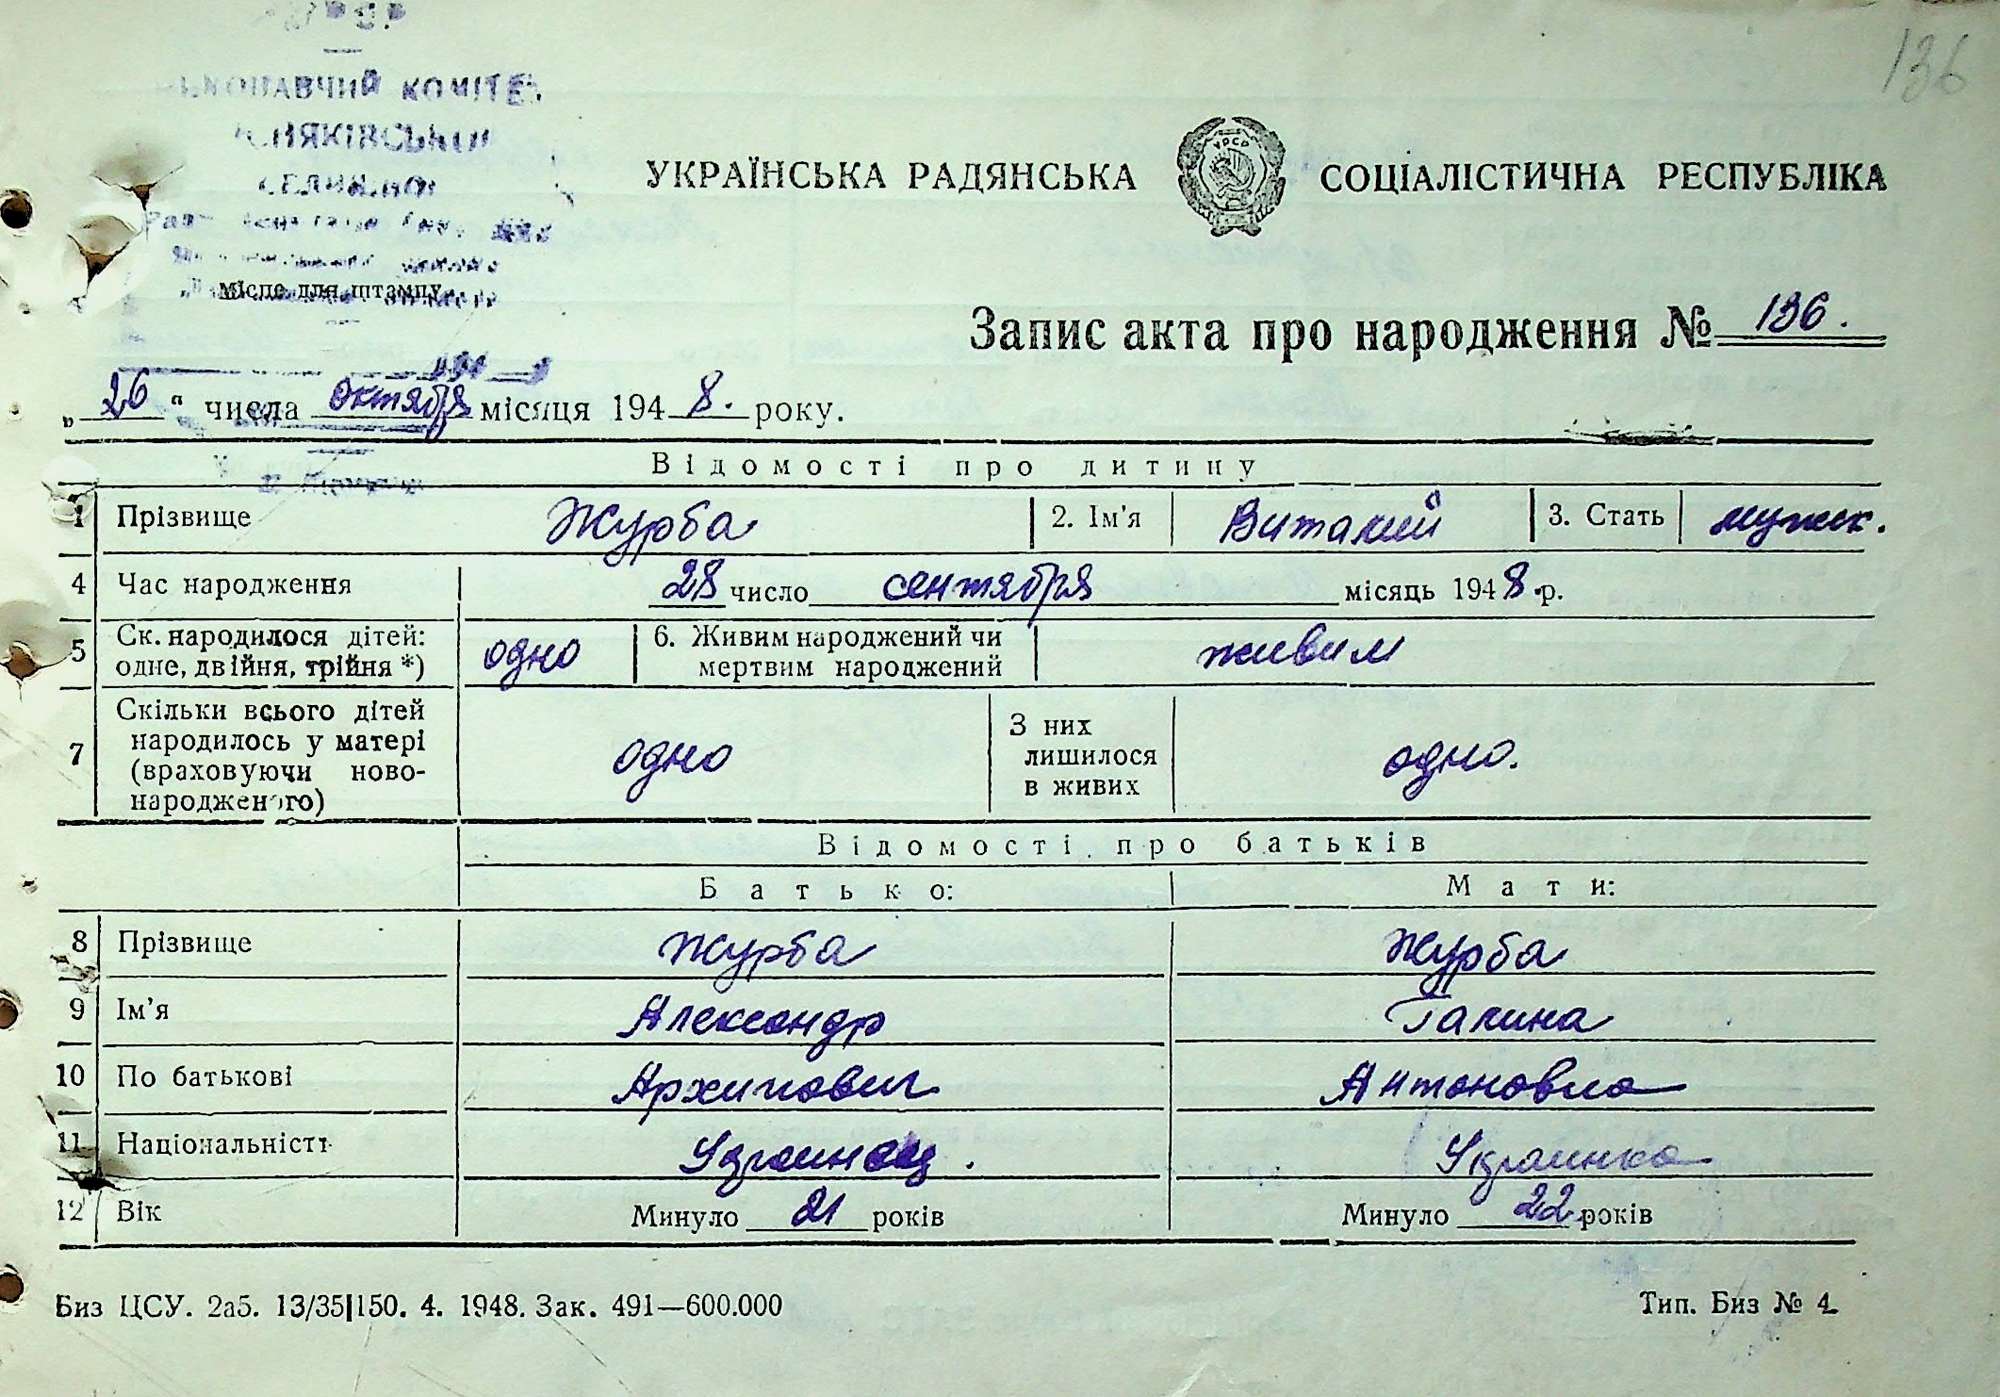 136
КОМІТЕ
УКРАЇНСЬКА РАДЯНСЬКА СОЦІАЛІСТИЧНА РЕСПУБЛІКА
УРСР
місце для штампу
Запис акта про народження № 136.
„26“ числа октября місяця 1948. року.
Відомості про дитину
1 Прізвище Журба 2. Ім'я Виталий 3. Стать мужск.
4 Час народження 28 число сентября місяць 1948.р.
5 Ск. народилося дітей: одне, двійня, трійня *) одно 6. Живим народжений чи мертвим народжений живим
7 Скільки всього дітей народилось у матері (враховуючи ново-народженого) одно З них лишилося в живих одно.
Відомості про батьків
Батько: Мати:
8 Прізвище Журба Журба
9 Ім'я Александр Галина
10 По батькові Архипович Антоновна
11 Національність Украинец. Украинка
12 Вік Минуло 21 років Минуло 22 років
Биз ЦСУ. 2а5. 13/35|150. 4. 1948. Зак. 491—600.000 Тип. Биз № 4